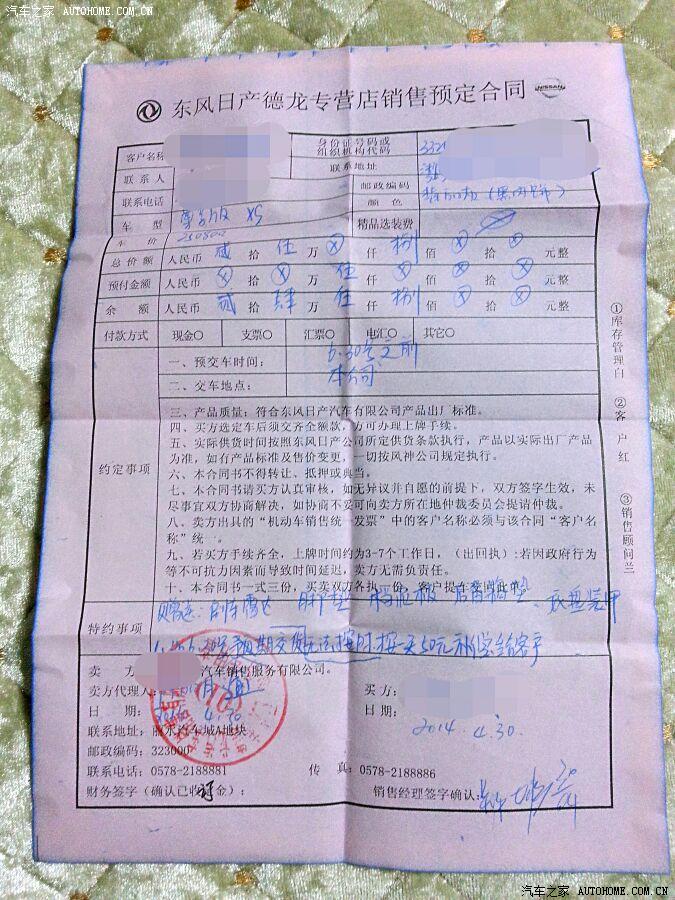 汽车之家 AUTOHOME.COM.CN
东风日产德龙专营店销售预定合同 NISSAN
客户名称 身份证号码或组织机构代码 332
联系人 联系地址
邮政编码
联系电话 颜色
车型 尊享版 XS 精品选装费
车价 250800
总价额 人民币 贰 拾 伍 万 ⊗ 仟 捌 佰 ⊗ 拾 ⊗ 元整
预付金额 人民币 ⊗ 拾 ⊗ 万 伍 仟 ⊗ 佰 ⊗ 拾 ⊗ 元整
余额 人民币 贰 拾 肆 万 伍 仟 捌 佰 ⊗ 拾 ⊗ 元整
付款方式 现金○ 支票○ 汇票○ 电汇○ 其它○
一、预交车时间: 6.30号之前
二、交车地点: 本公司
约定事项
三、产品质量:符合东风日产汽车有限公司产品出厂标准。
四、买方选定车后须交齐全额款,方可办理上牌手续。
五、实际供货时间按照东风日产公司所定供货条款执行,产品以实际出厂产品
为准,如有产品标准及售价变更,一切按风神公司规定执行。
六、本合同书不得转让、抵押或典当。
七、本合同书请买方认真审核,如无异议并自愿的前提下,双方签字生效,未
尽事宜双方协商解决,如协商不妥可向卖方所在地仲裁委员会提请仲裁。
八、卖方出具的“机动车销售统一发票”中的客户名称必须与该合同“客户名
称”统一。
九、若买方手续齐全,上牌时间约为3-7个工作日,(出回执):若因政府行为
等不可抗力因素而导致时间延迟,卖方无需负责任。
十、本合同书一式三份,买卖双方各执一份,客户提车签回此单
特约事项
脚垫 后备箱垫 底盘装甲
按一天50元补偿给客户
卖方 汽车销售服务有限公司。
卖方代理人: 买方:
日期: 4.30 日期: 2014.4.30
联系地址:丽水汽车城A地块
邮政编码:323000
联系电话:0578-2188881 传真:0578-2188886
财务签字(确认已收订金): 销售经理签字确认:
①库存管理白 ②客户红 ③销售顾问兰
汽车之家 AUTOHOME.COM.CN